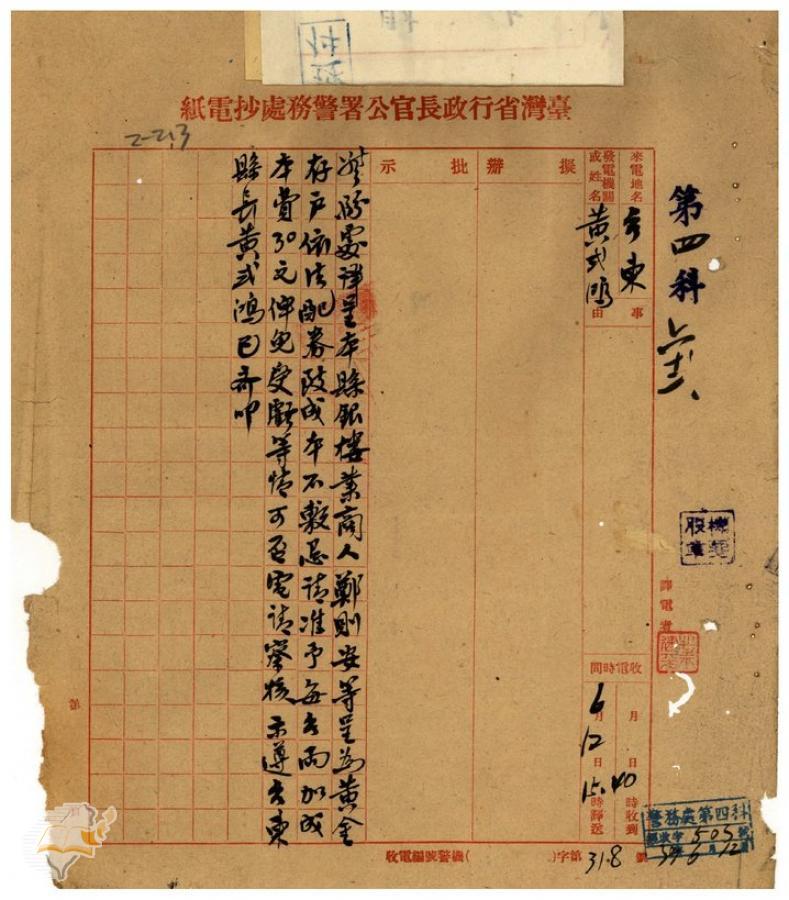 臺灣省行政長官公署警務處抄電紙
2-213
第四科
來電地名
台東
發電機關或姓名
黃式鴻
事由
擬辦
批示
警務處譯呈本縣銀樓業商人鄭則安等呈為黃金
存戶依法配劵 成本不敷 請准予每台兩加成
本費30元俾免受虧等情可否電請察核示遵台東
縣長黃式鴻巳 叩
機要股章
譯電者
收電時間
月 日 時收到
6月12日15.40時譯送
收電編號警機( )字第318號
警務處第四科
收字505號
6月12
第